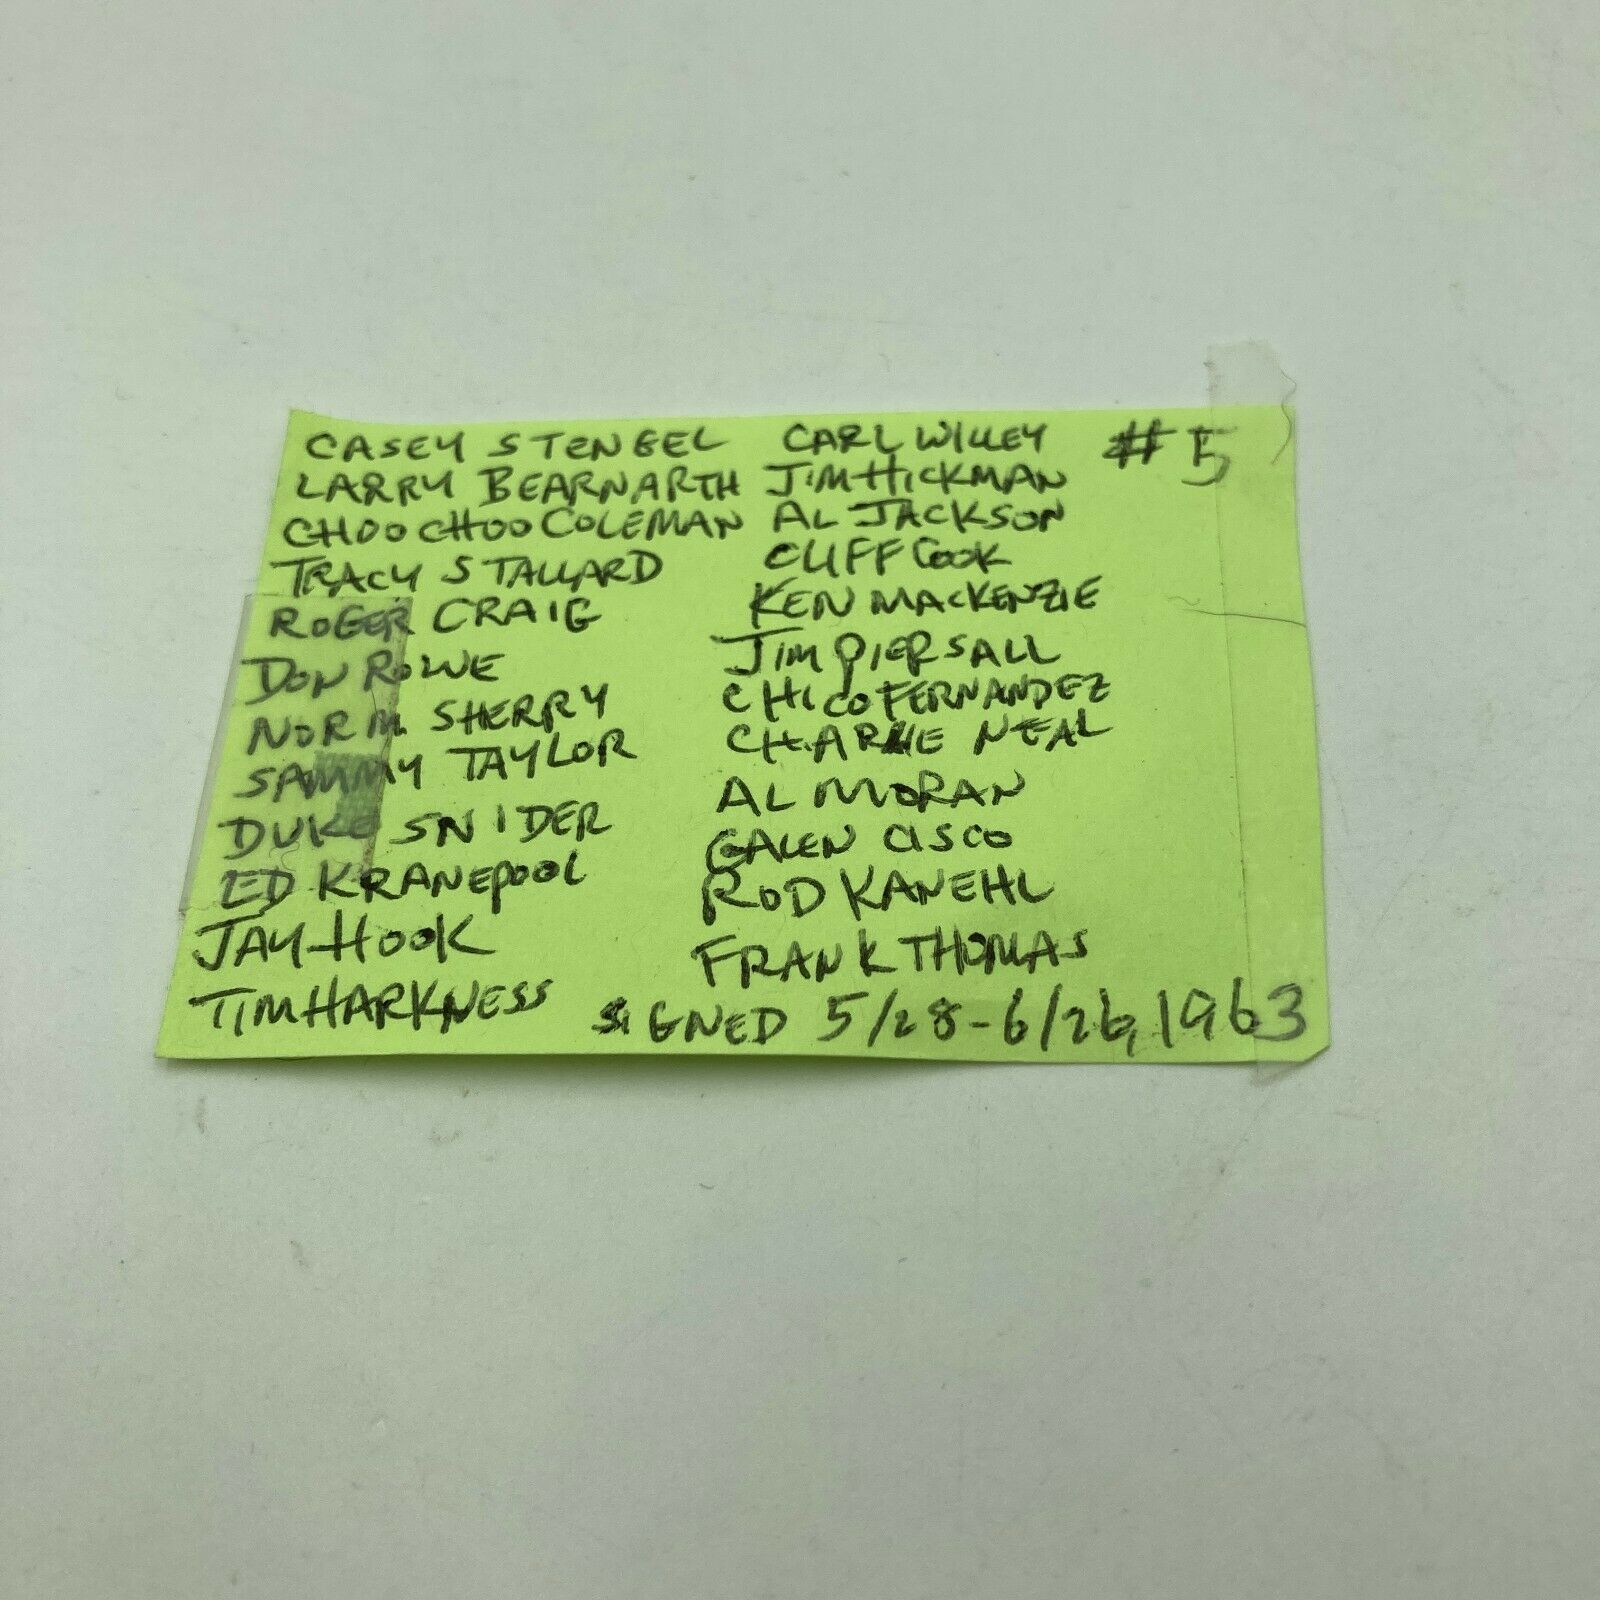 CASEY STENGEL
LARRY BEARNARTH
CHOO CHOO COLEMAN
TRACY STALLARD
ROGER CRAIG
DON ROWE
NORM SHERRY
SAMMY TAYLOR
DUKE SNIDER
ED KRANEPOOL
JAY HOOK
TIM HARKNESS
CARL WILLEY
JIM HICKMAN
AL JACKSON
CLIFF COOK
KEN MACKENZIE
JIM PIERSALL
CHICO FERNANDEZ
CHARLIE NEAL
AL MORAN
GALEN CISCO
ROD KANEHL
FRANK THOMAS
SIGNED 5/28-6/26, 1963
#5